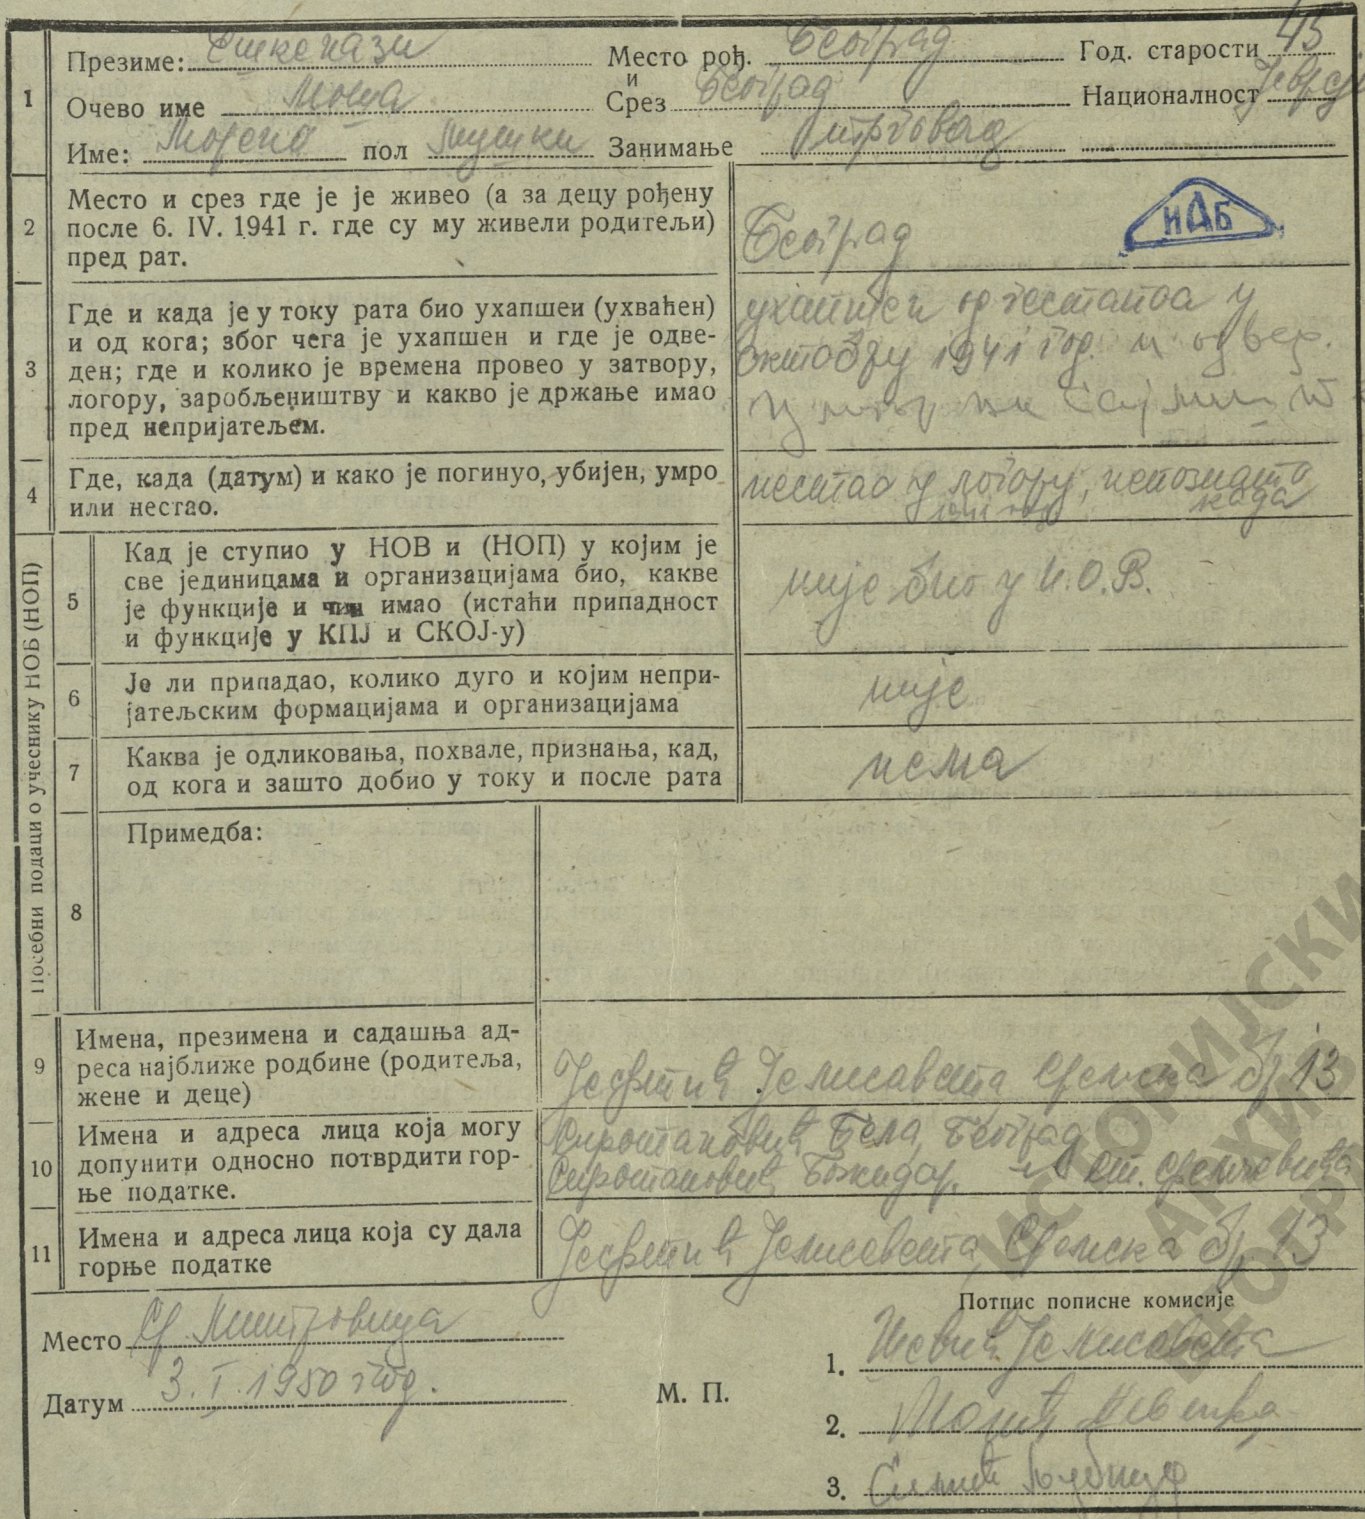 1 Презиме: Ешкенази Место рођ. Београд Год. старости 45
Очево име Моша и Срез Београд Националност Јевреј
Име: пол мушки Занимање трговац
2 Место и срез где је је живео (а за децу рођену
после 6. IV. 1941 г. где су му живели родитељи)
пред рат.
Београд
НАБ
3 Где и када је у току рата био ухапшеи (ухваћен)
и од кога; због чега је ухапшен и где је одве-
ден; где и колико је времена провео у затвору,
логору, заробљеништву и какво је држање имао
пред непријатељем.
ухапшен од гестапоа у
октобру 1941 год. и одвед.
у логор на Сајмишт
4 Где, када (датум) и како је погинуо, убијен, умро
или нестао.
нестао у логору, непознато
када
Посебни подаци о учеснику НОБ (НОП)
5 Кад је ступио у НОВ и (НОП) у којим је
све јединицама и организацијама био, какве
је функције и чин имао (истаћи припадност
и функције у КПЈ и СКОЈ-у)
није био у Н.О.В.
6 Је ли припадао, колико дуго и којим непри-
јатељским формацијама и организацијама
није
7 Каква је одликовања, похвале, признања, кад,
од кога и зашто добио у току и после рата
нема
8 Примедба:
9 Имена, презимена и садашња ад-
реса најближе родбине (родитеља,
жене и деце)
Јелисавета Сремска бр 13
10 Имена и адреса лица која могу
допунити односно потврдити гор-
ње податке.
Бела, Београд
Божидар,
11 Имена и адреса лица која су дала
горње податке
Јелисавета Сремска бр 13
Место Ср. Митровица
Датум 3. I. 1950 год.
М. П.
Потпис пописне комисије
1. Јелисавета
2.
3.
ИСТОРИЈСКИ
АРХИВ
БЕОГРА